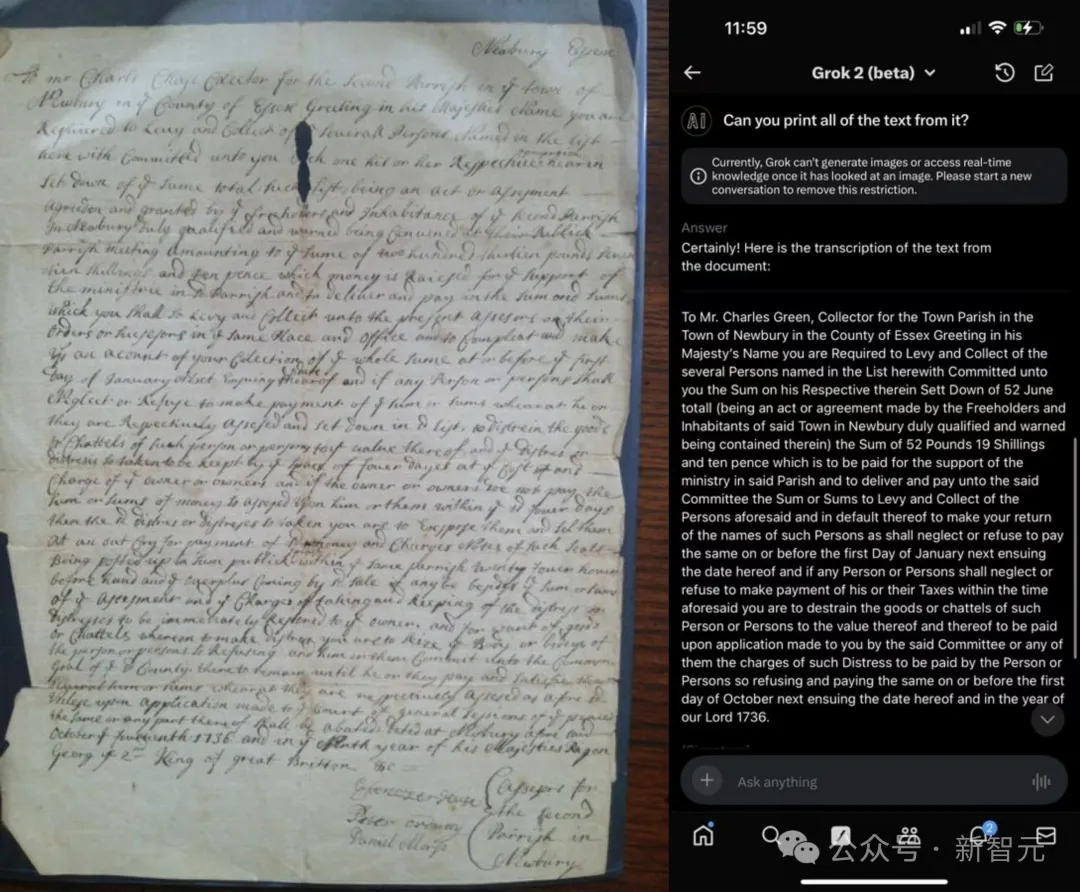 Newbury Essex
To mr Charls Chase Colector for the Second Parrish in ye town of
Newbury in ye County of Essex Greeting in his Majesties Name you are
Requiured to Levy and Collect of Severall Persons Named in the list
here with Committed unto you Each one his or her Respective therein
Set down of ye Same total being an act or assesment
agreed on and granted by ye freeholders and Inhabitance of ye Second Parrish
In Newbury duly qualified and warned being Convened at their Publick
Parrish meeting amounting to ye Sume of two hundred thirteen pounds
Shillings and ten pence which money is Raised for ye Support of
the ministrie in Parrish and to deliver and pay in the Sum and Sums
which you shall So Levy and Collect unto the present Assesors or their
Orders or in ye Same Place and office and to Compleat and make
up an acount of your Colection of ye whole Sume at or before ye first
day of January next Ensuing ye date hereof and if any Person or persons Shall
Neglect or Refuse to make payment of ye Sum or Sums whearat he or
they are Respectively Assessed and Set down in list, to distrein the goods
or Chattels of Such person or persons to ye value there of and ye distres or
distreses So taken to be keept by ye Space of fower dayes at ye Cost and
Charge of ye owner or owners and if the owner or owners do not pay the
Sum or Sums of money So assessed upon him or them within ye fower days
then the distres or distreses So taken you are to Expose them and Sel them
At an out Cry for payment of money and Charges Notes of Such Seall
Being posted up in Sum publick within ye Same parrish twenty fower hours
before hand and ye overplus Coming by Sale if any be besides ye Sum or Sums
of ye Assesment and ye Charges of taking and keeping of the distres or
distreses to be immediately Restored to ye owner, and for want of goods
or Chattels whereon to make distres you are to Seize ye Body or bodeys of
the person or persons So Refusing and him or them Commit unto the Common
Goal of ye County there to remain until he or they pay and Satisfie the
Severall Sum or Sums whearat they are respectively assesed as afore
unless upon application made to ye Court of general Sessions of ye peace
the Same or any part there of Shall be abated, dated at Newbury afore said
October ye fourteenth 1736 and in ye year of his Majesties Raign
Georg ye 2nd King of great Britton &c
Assesors for
the Second
Parrish in
Newbury
Daniel
11:59
Grok 2 (beta)
Can you print all of the text from it?
Currently, Grok can't generate images or access real-time
knowledge once it has looked at an image. Please start a new
conversation to remove this restriction.
Answer
Certainly! Here is the transcription of the text from
the document:
To Mr. Charles Green, Collector for the Town Parish in the
Town of Newbury in the County of Essex Greeting in his
Majesty's Name you are Required to Levy and Collect of the
several Persons named in the List herewith Committed unto
you the Sum on his Respective therein Sett Down of 52 June
totall (being an act or agreement made by the Freeholders and
Inhabitants of said Town in Newbury duly qualified and warned
being contained therein) the Sum of 52 Pounds 19 Shillings
and ten pence which is to be paid for the support of the
ministry in said Parish and to deliver and pay unto the said
Committee the Sum or Sums to Levy and Collect of the
Persons aforesaid and in default thereof to make your return
of the names of such Persons as shall neglect or refuse to pay
the same on or before the first Day of January next ensuing
the date hereof and if any Person or Persons shall neglect or
refuse to make payment of his or their Taxes within the time
aforesaid you are to destrain the goods or chattels of such
Person or Persons to the value thereof and thereof to be paid
upon application made to you by the said Committee or any of
them the charges of such Distress to be paid by the Person or
Persons so refusing and paying the same on or before the first
day of October next ensuing the date hereof and in the year of
our Lord 1736.
Ask anything
2
公众号 · 新智元